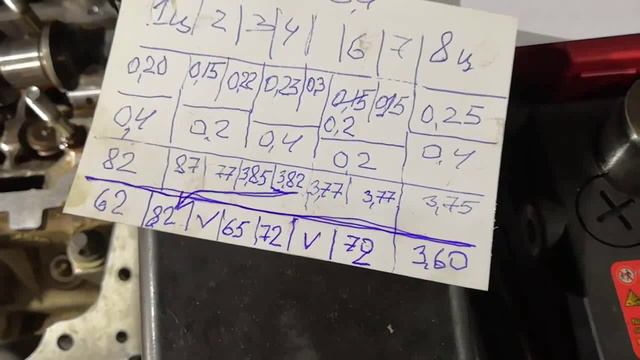 1ц 2 3 4 6 7 8ц
0,20 0,15 0,22 0,23 0,3 0,15 0,15 0,25
0,4 0,2 0,4 0,2 0,2 0,4
82 87 77 3,85 3,82 3,77 3,77 3,75
62 82 V 65 72 V 70 3,60